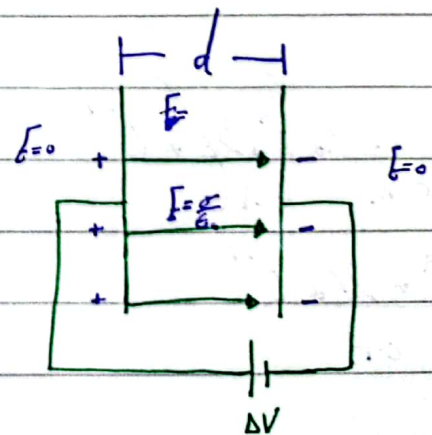 d
E
E=0 + - E=0
E=σ/ε₀
+ -
+ -
ΔV